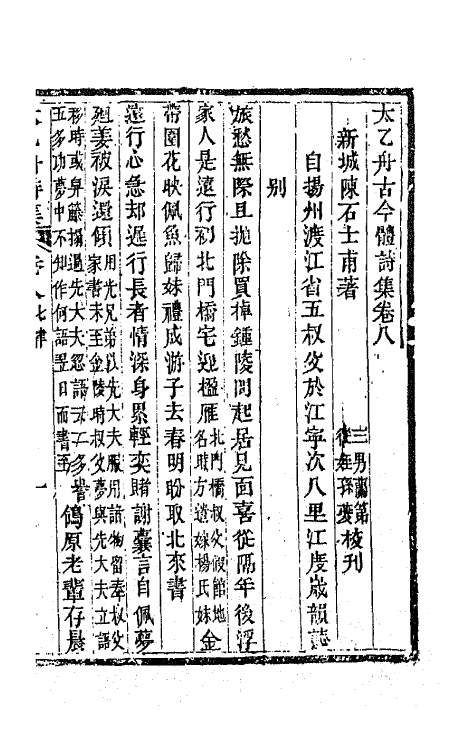 太乙舟古今體詩集卷八
新城陳石士甫著
三男蘭第
從姪孫夔校刊
自揚州渡江省五叔父於江寧次八里江度歲韻誌
別
旅愁無際且拋除買棹鍾陵問起居見面喜從隔年後浮
家人是遠行初北門橋宅迎楹雁
北門橋叔父假館地
名時方遣妹楊氏妹
金
帶圍花映佩魚歸妹禮成游子去春明盼取北來書
遠行心急却遲行長者情深身累輕奕賭謝囊言自佩夢
廻姜被淚還傾
用先兄弟以先大夫服用諸物留奉叔父
家書未至金陵時叔父夢與先大夫立語
移時或舁籐摺過先大夫忽語云二多
五多功夢中不知作何語翌日而書至
鴒原老輩存晨
卷八七律
一